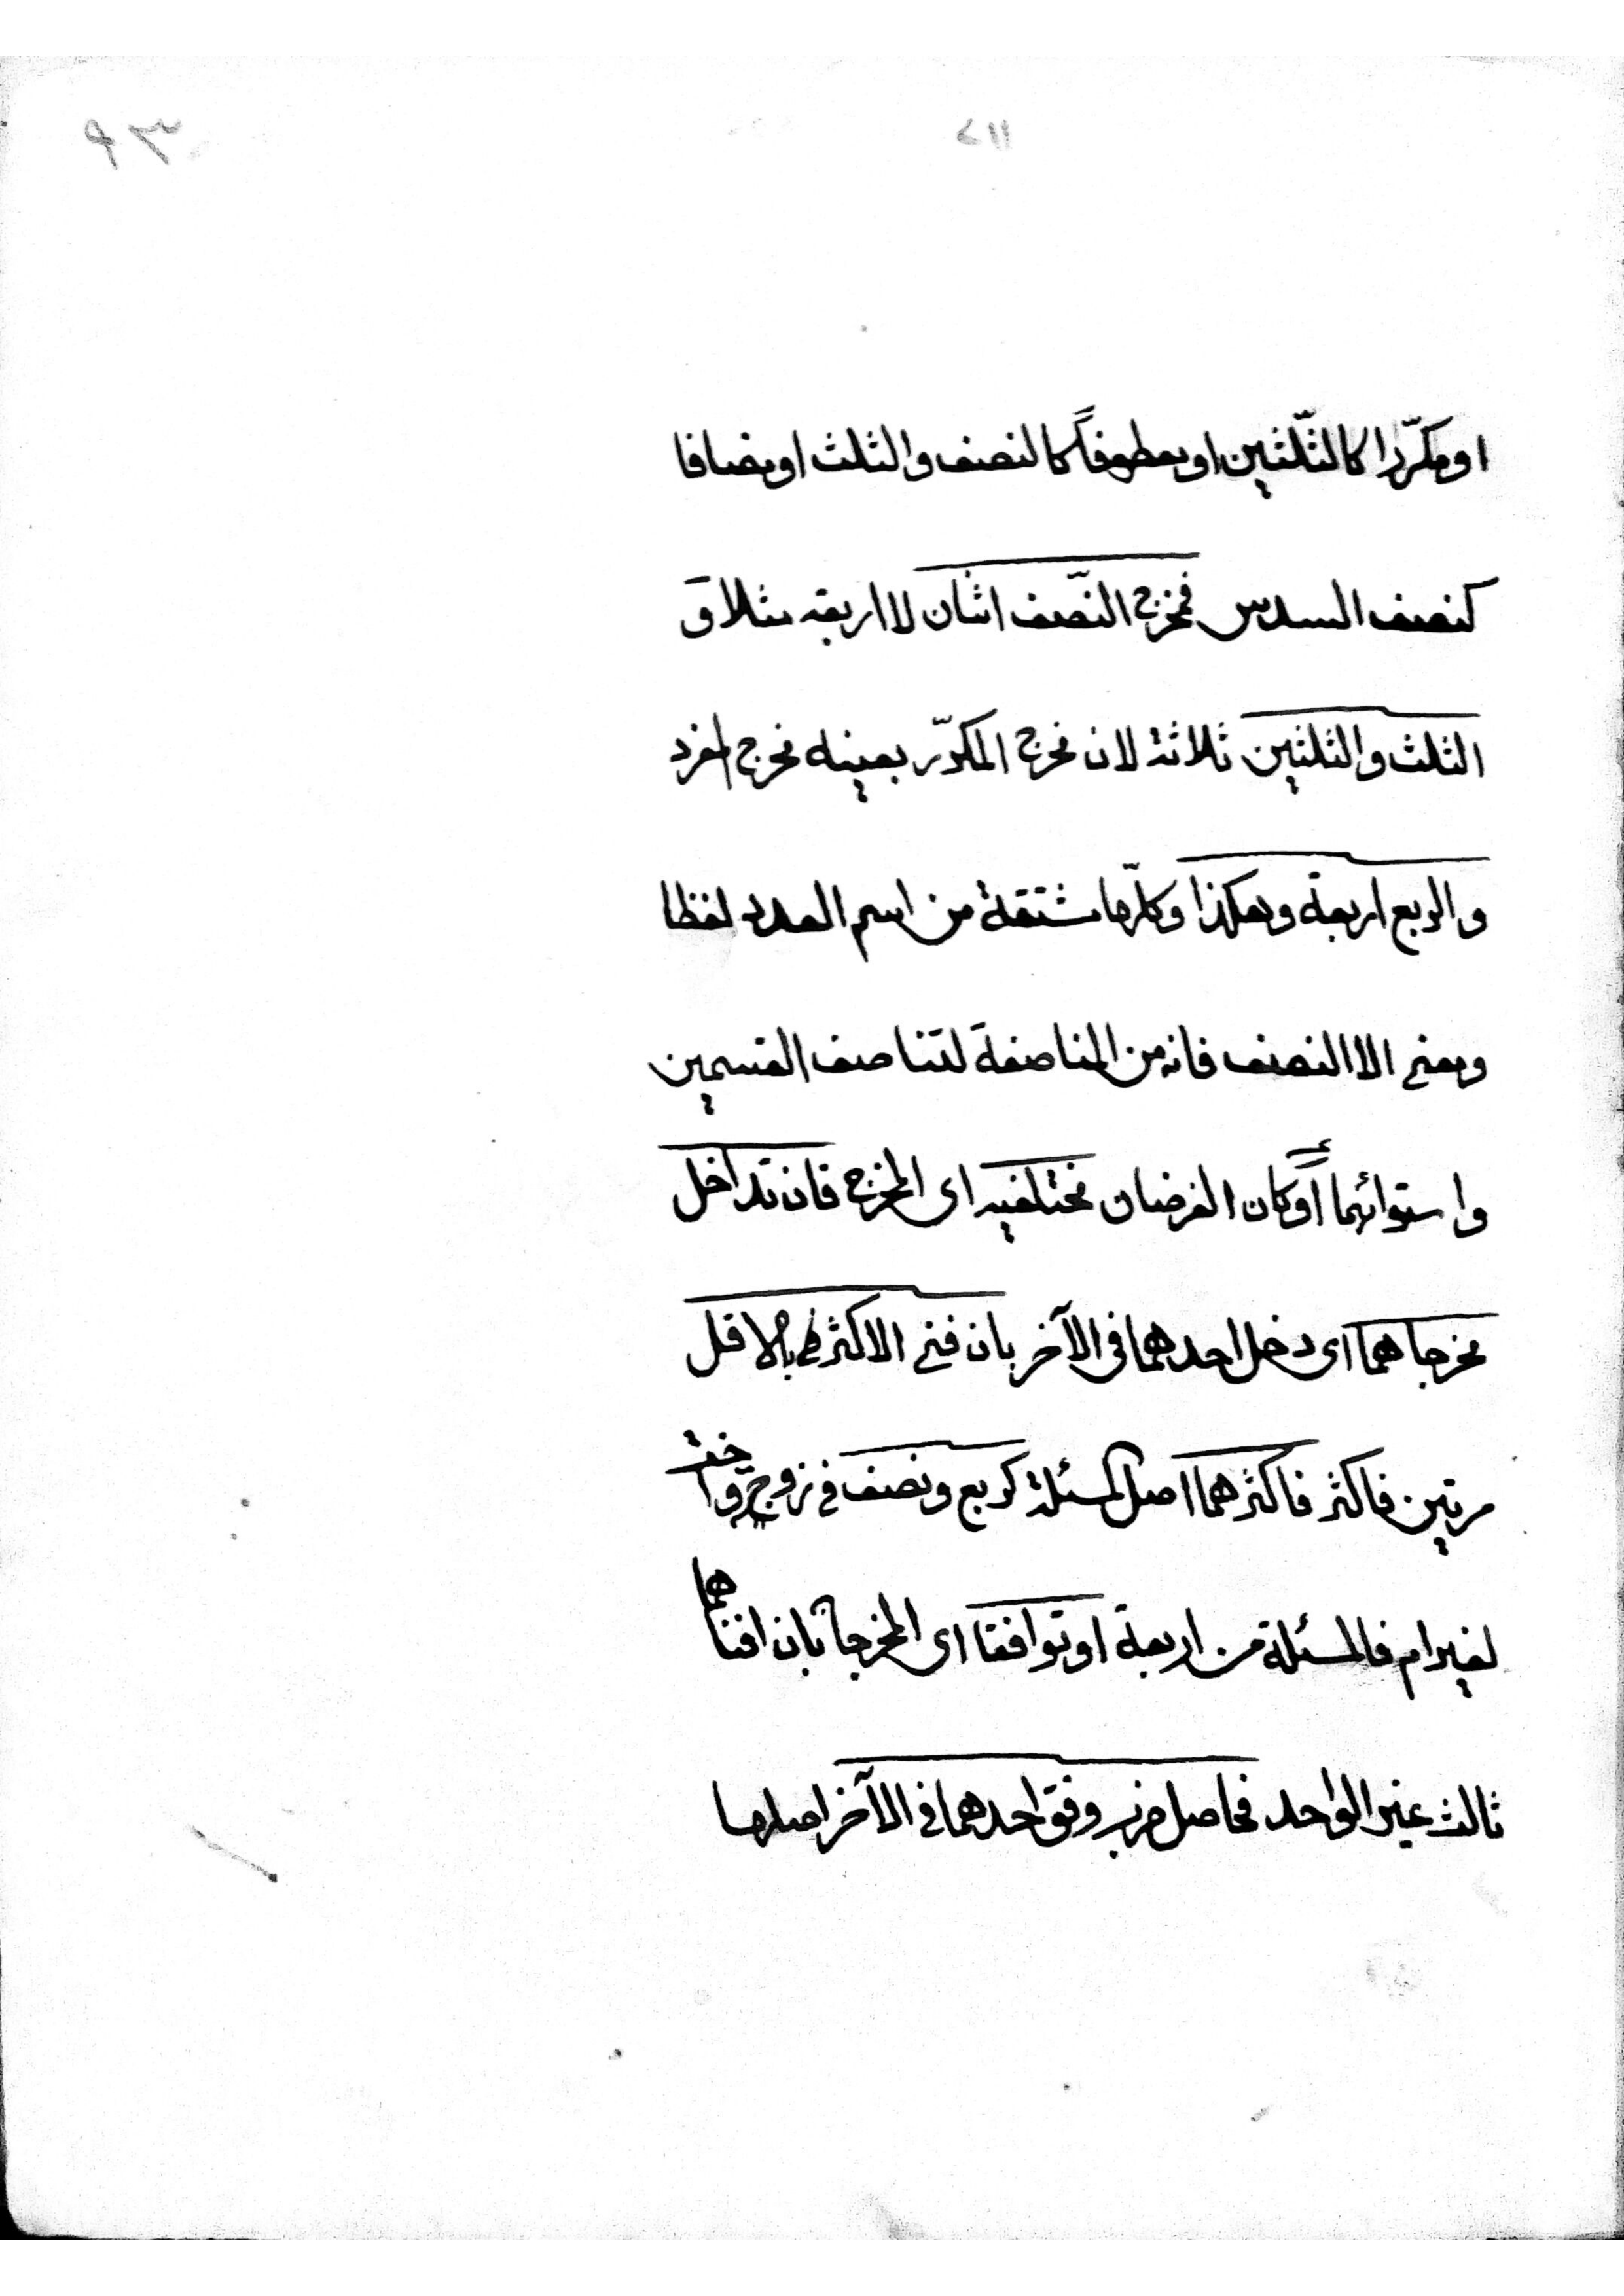 او مكرّرا كالثّلثين او معطوفاً كالنصف والثلث او مضافا
كنصف السدس فمخرج النّصف اثنان لا اربعة مثلا وَ
الثلث والثلثين ثلاثة لان مخرج المكرّر بعينه مخرج المفرد
والربع اربعة وهكذا وكلّها مشتقة من اسم العدد لفظا
ومعنى الا النصف فانه من المناصفة لتناصف القسمين
واستوائهما أوكان الفرضان مختلفيه اى المخرج فان تداخل
مخرجاهما اى دخل احدهما فى الآخر بان فنى الاكثر بالاقل
مرتين فاكثر فاكثرهما اصل المسئلة كربع ونصف فى زوج واخت
لغير ام فالمسئلة من اربعة او توافقا اى المخرجا بان افناهما
ثالث غير الواحد فحاصل ضرب وفق احدهما فى الآخر اصلها